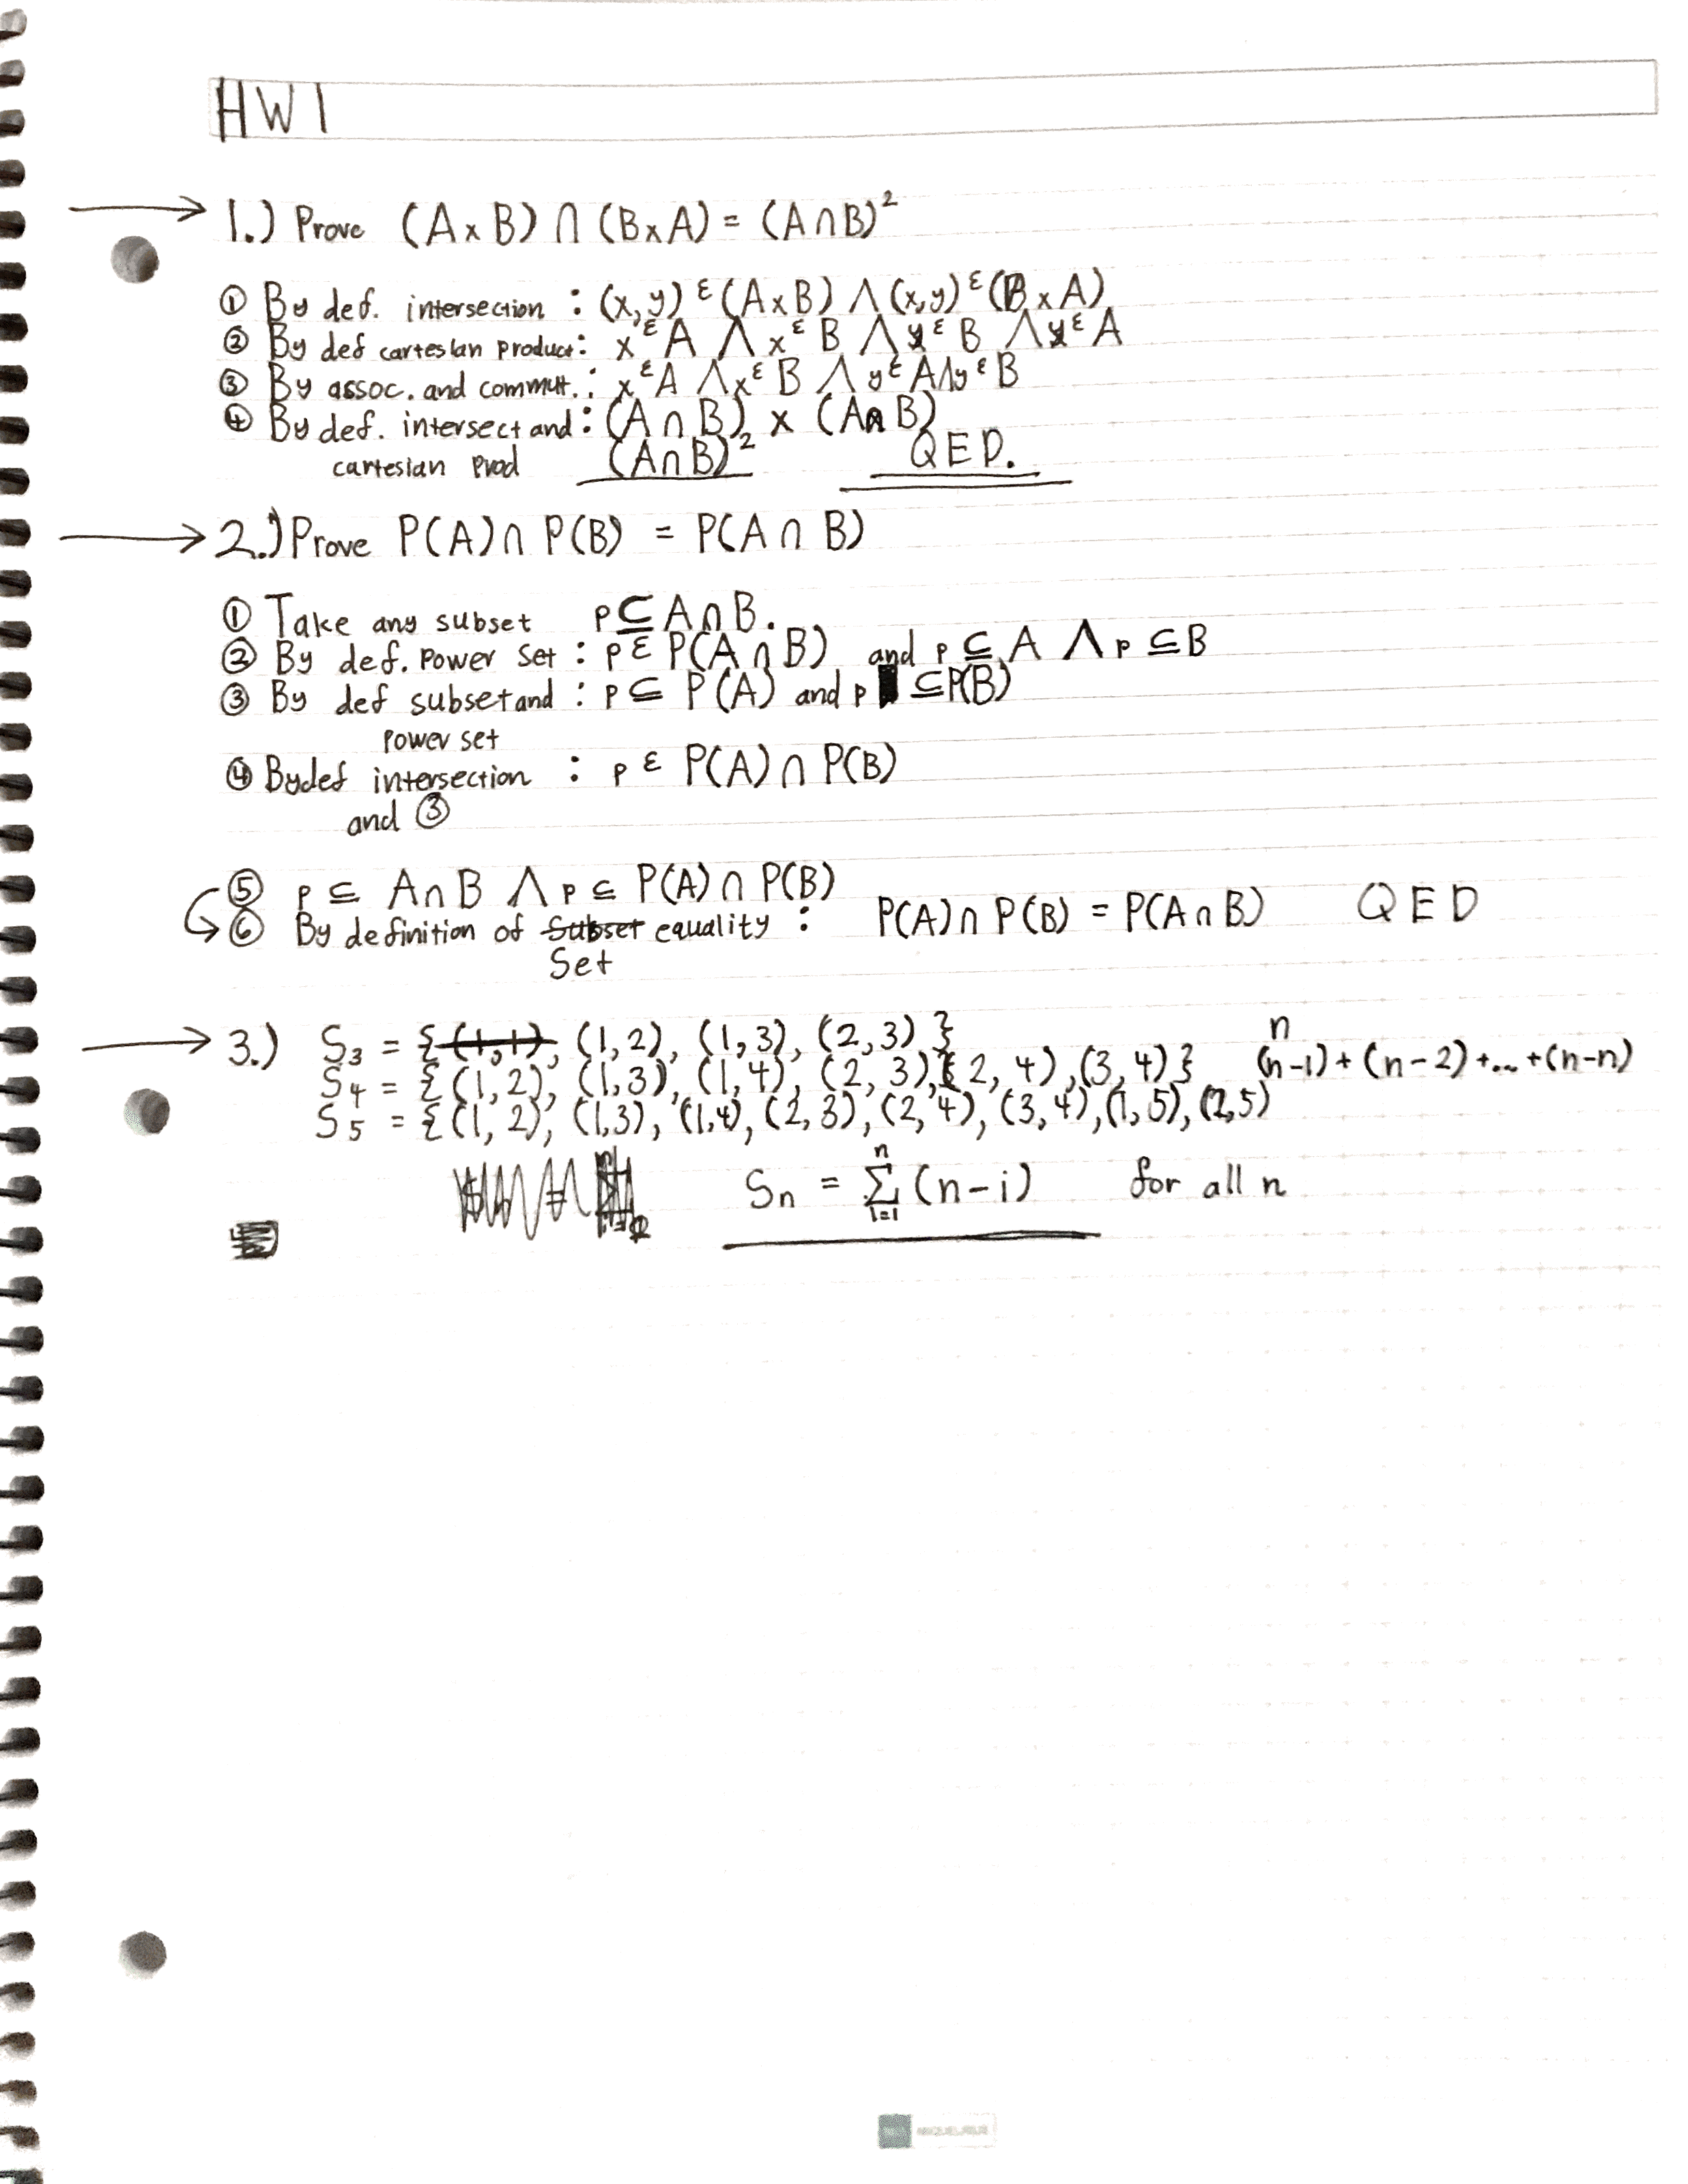 HW1
1.) Prove (A x B) ∩ (B x A) = (A ∩ B)²
① By def. intersection : (x,y) ε (A x B) ∧ (x,y) ε (B x A)
② By def cartesian product: x ε A ∧ x ε B ∧ y ε B ∧ y ε A
③ By assoc. and commut.: x ε A ∧ x ε B ∧ y ε A ∧ y ε B
④ By def. intersect and : (A ∩ B) x (A ∩ B)
cartesian prod (A ∩ B)² QED.
2.) Prove P(A) ∩ P(B) = P(A ∩ B)
① Take any subset p ⊆ A ∩ B.
② By def. Power Set : p ε P(A ∩ B) and p ⊆ A ∧ p ⊆ B
③ By def subset and : p ⊆ P(A) and p ⊆ P(B)
power set
④ By def intersection : p ε P(A) ∩ P(B)
and ③
⑤ p ⊆ A ∩ B ∧ p ⊆ P(A) ∩ P(B)
⑥ By definition of subset equality : P(A) ∩ P(B) = P(A ∩ B) QED
Set
3.) S₃ = { (1,1), (1,2), (1,3), (2,3) } n
S₄ = { (1,2), (1,3), (1,4), (2,3), (2,4), (3,4) } (n-1) + (n-2) + ... + (n-n)
S₅ = { (1,2), (1,3), (1,4), (2,3), (2,4), (3,4), (1,5), (2,5)
Sn = n Σ i=1 (n-i) for all n